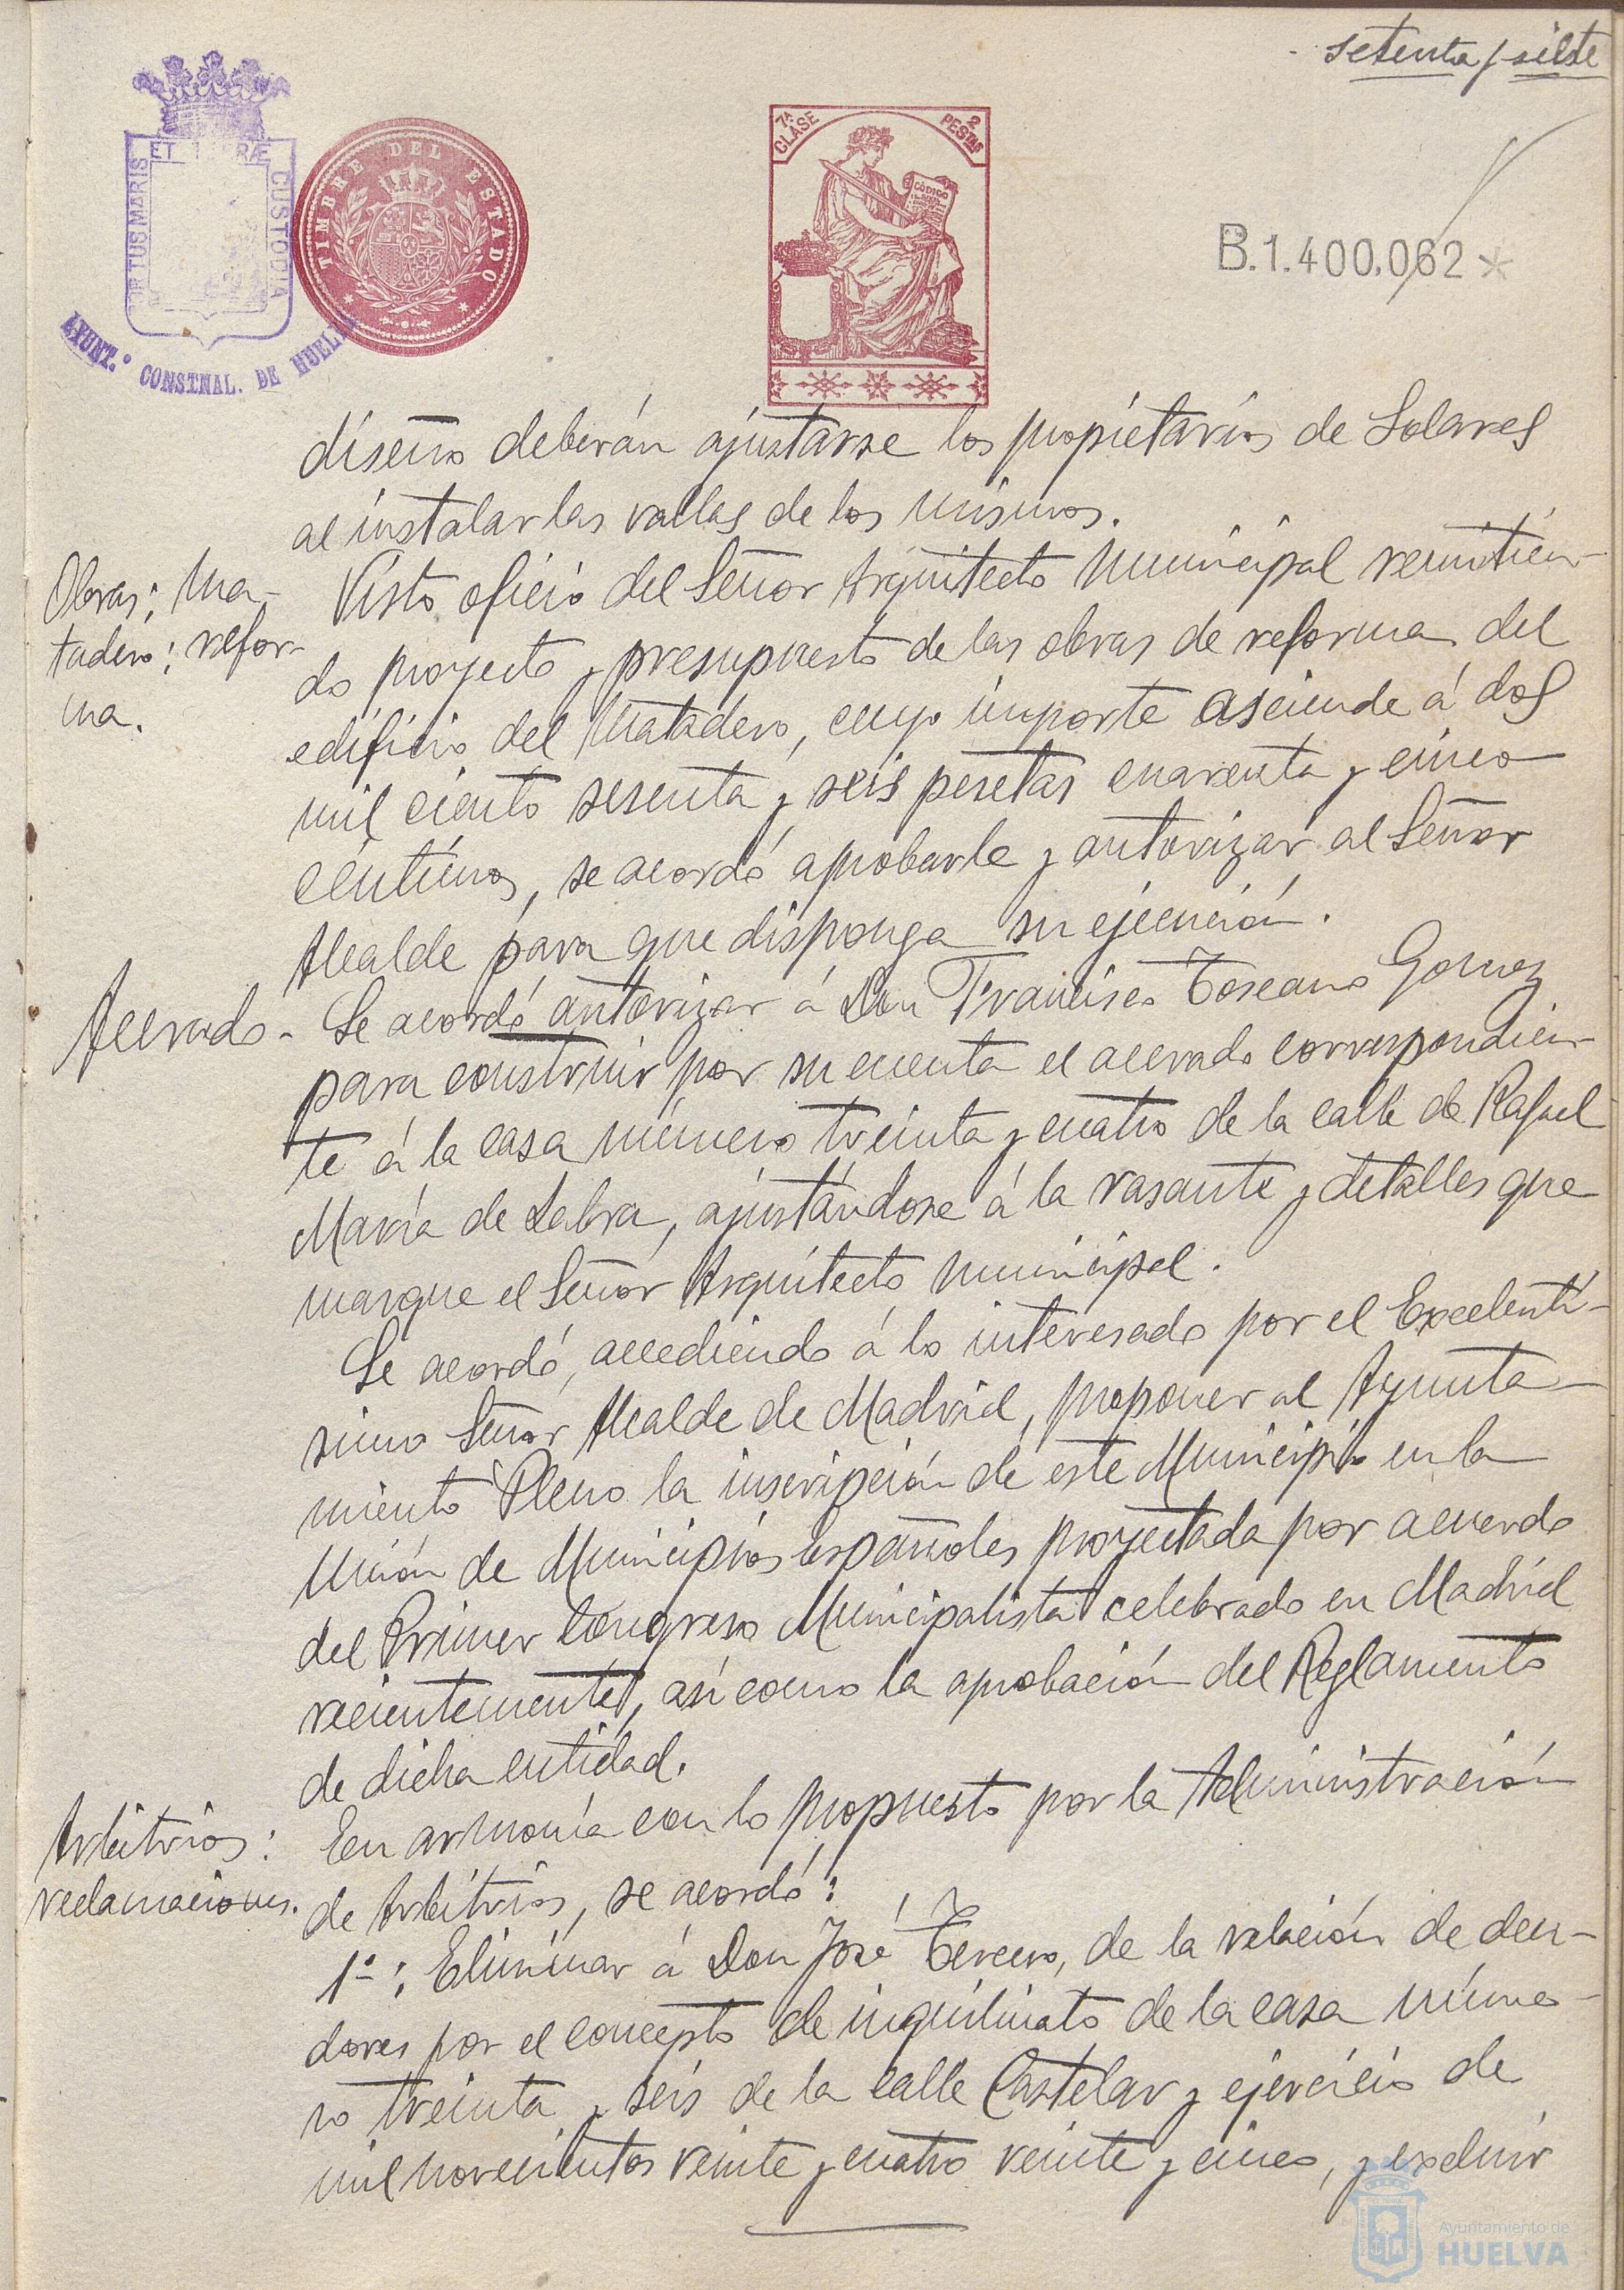 setenta y siete
ET TERRÆ
PORTUS MARIS
CUSTODIA
AYUNT.º CONSTNAL. DE HUELVA
TIMBRE DEL ESTADO
7ª CLASE
2 PESTAS
CÓDIGO
B.1.400.062*
diseño deberán ajustarse los propietarios de Solares
al instalar las vallas de los mismos.
Obras; Ma-
tadero; refor-
ma.
Visto oficio del Señor Arquitecto Municipal remitien-
do proyecto y presupuesto de las obras de reforma del
edificio del Matadero, cuyo importe asciende á dos
mil ciento sesenta y seis pesetas cuarenta y cinco
céntimos, se acordó aprobarle y autorizar al Señor
Alcalde para que disponga su ejecución.
Acerado-
Se acordó autorizar á Don Francisco Toscano Gomez
para construir por su cuenta el acerado correspondien-
te á la casa número treinta y cuatro de la calle de Rafael
María de Labra, ajustándose á la rasante y detalles que
marque el Señor Arquitecto Municipal.
Se acordó, accediendo á lo interesado por el Excelentí-
simo Señor Alcalde de Madrid, proponer al Ayunta-
miento Pleno la inscripción de este Municipio en la
Unión de Municipios españoles proyectada por acuerdo
del Primer Congreso Municipalista celebrado en Madrid
recientemente, así como la aprobación del Reglamento
de dicha entidad.
Arbitrios:
reclamaciones.
En armonía con lo propuesto por la Administración
de Arbitrios, se acordó:
1º: Eliminar á Don José Tercero, de la relación de deu-
dores por el concepto de inquilinato de la casa núme-
ro treinta y seis de la calle Castelar y ejercicio de
mil novecientos veinte y cuatro veinte y cinco, y excluir
Ayuntamiento de
HUELVA